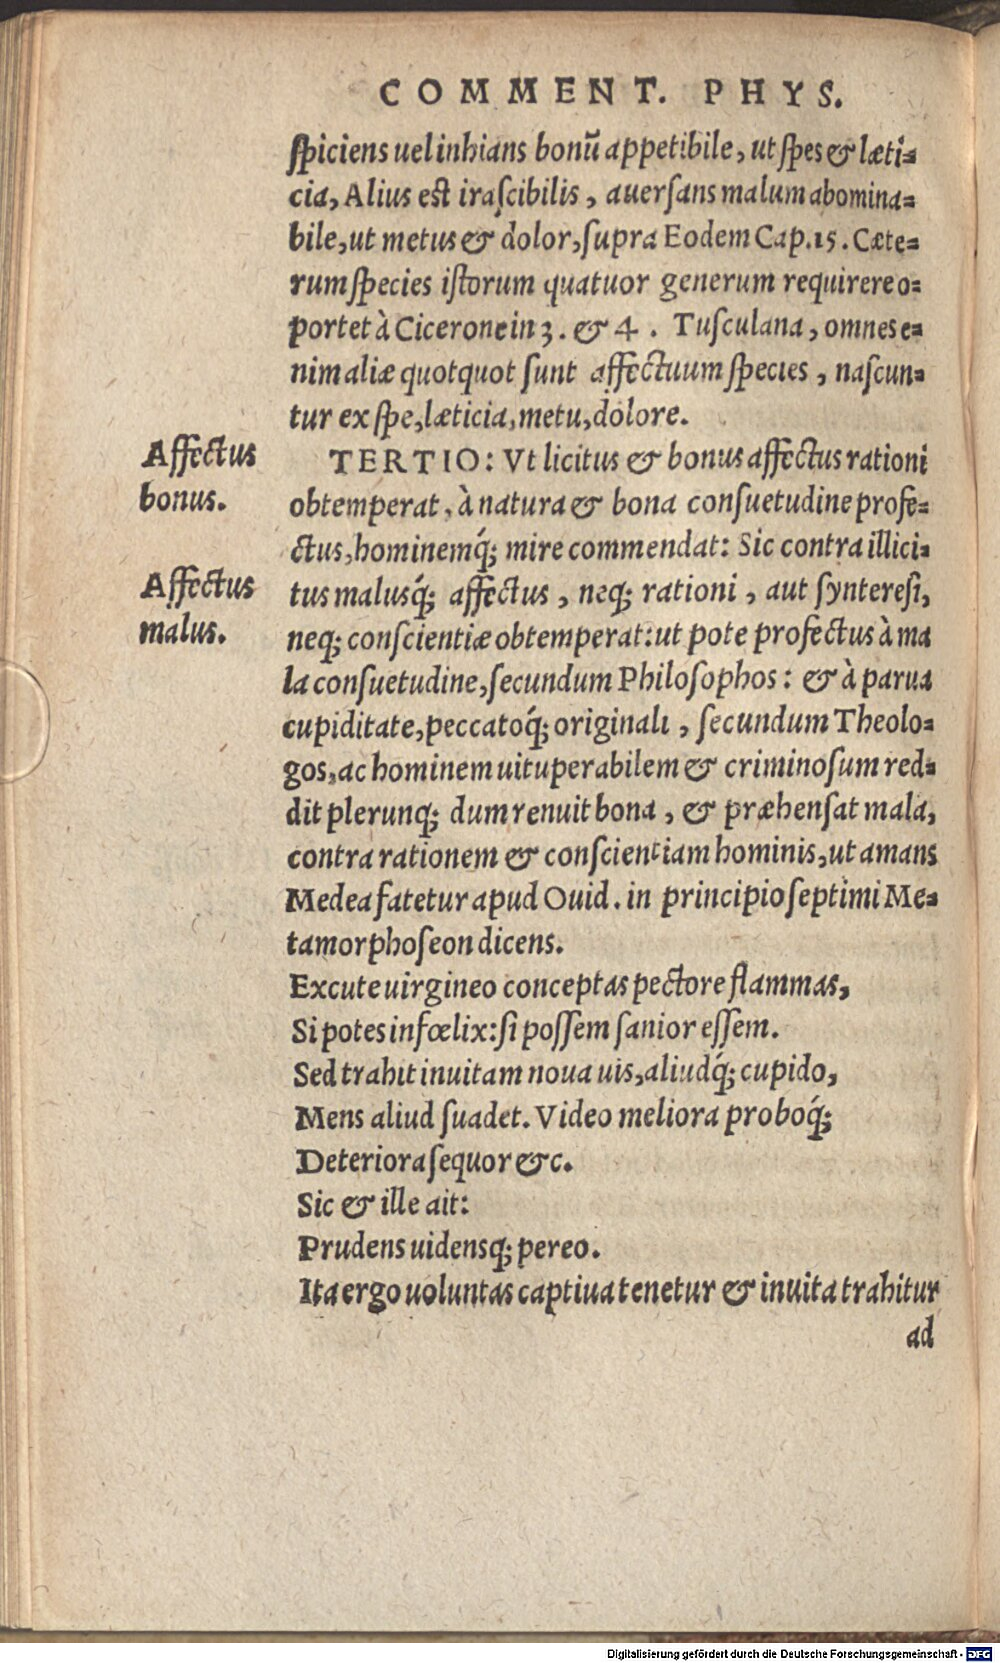 COMMENT. PHYS.
spiciens uel inhians bonũ appetibile, ut spes & læti-
cia, Alius est irascibilis, auersans malum abomina-
bile, ut metus & dolor, supra Eodem Cap.15. Cæte-
rum species istorum quatuor generum requirere o-
portet à Cicerone in 3. & 4. Tusculana, omnes e-
nim aliæ quotquot sunt affectuum species, nascun-
tur ex spe, læticia, metu, dolore.
Affectus
bonus.
TERTIO: Vt licitus & bonus affectus rationi
obtemperat, à natura & bona consuetudine profe-
ctus, hominemq́; mire commendat: Sic contra illici-
Affectus
malus.
tus malusq́; affectus, neq; rationi, aut synteresi,
neq; conscientiæ obtemperat: ut pote profectus à ma
la consuetudine, secundum Philosophos: & à parua
cupiditate, peccatoq́; originali, secundum Theolo-
gos, ac hominem uituperabilem & criminosum red-
dit plerunq; dum renuit bona, & præhensat mala,
contra rationem & conscientiam hominis, ut amans
Medea fatetur apud Ouid. in principio septimi Me-
tamorphoseon dicens.
Excute uirgineo conceptas pectore flammas,
Si potes infœlix: si possem sanior essem.
Sed trahit inuitam noua uis, aliudq́; cupido,
Mens aliud suadet. Video meliora proboq́;
Deteriora sequor &c.
Sic & ille ait:
Prudens uidensq; pereo.
Ita ergo uoluntas captiua tenetur & inuita trahitur
ad
Digitalisierung gefördert durch die Deutsche Forschungsgemeinschaft - DFG